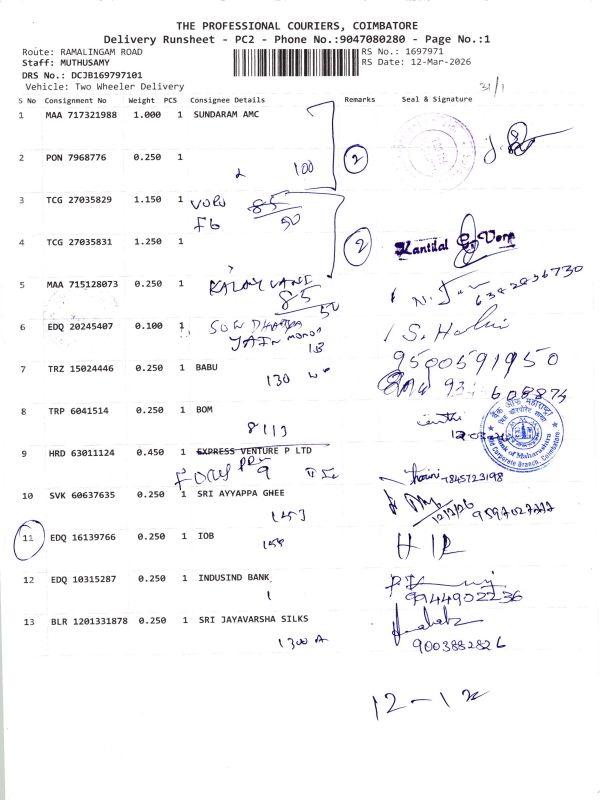 THE PROFESSIONAL COURIERS, COIMBATORE
Delivery Runsheet - PC2 - Phone No.:9047080280 - Page No.:1
Route: RAMALINGAM ROAD
RS No.: 1697971
Staff: MUTHUSAMY
RS Date: 12-Mar-2026
DRS No.: DCJB169797101
Vehicle: Two Wheeler Delivery
31/1
S No Consignment No Weight PCS Consignee Details Remarks Seal & Signature
1 MAA 717321988 1.000 1 SUNDARAM AMC
2 PON 7968776 0.250 1
100
2
3 TCG 27035829 1.150 1
85
50
4 TCG 27035831 1.250 1
2 Kantilal Vora
5 MAA 715128073 0.250 1 KALAIVANI
85
50
6382836730
6 EDQ 20245407 0.100 1
JAIN
S. Halni
7 TRZ 15024446 0.250 1 BABU
9500591950
130
8 TRP 6041514 0.250 1 BOM
8113
बैंक ऑफ महाराष्ट्र
Bank of Maharashtra
Corporate Branch, Coimbatore
9 HRD 63011124 0.450 1 EXPRESS VENTURE P LTD
9
7845723198
10 SVK 60637635 0.250 1 SRI AYYAPPA GHEE
1453
12/3/26
9597027777
11 EDQ 16139766 0.250 1 IOB
12 EDQ 10315287 0.250 1 INDUSIND BANK
1
9944902236
13 BLR 1201331878 0.250 1 SRI JAYAVARSHA SILKS
1300 A
9003882826
12-12